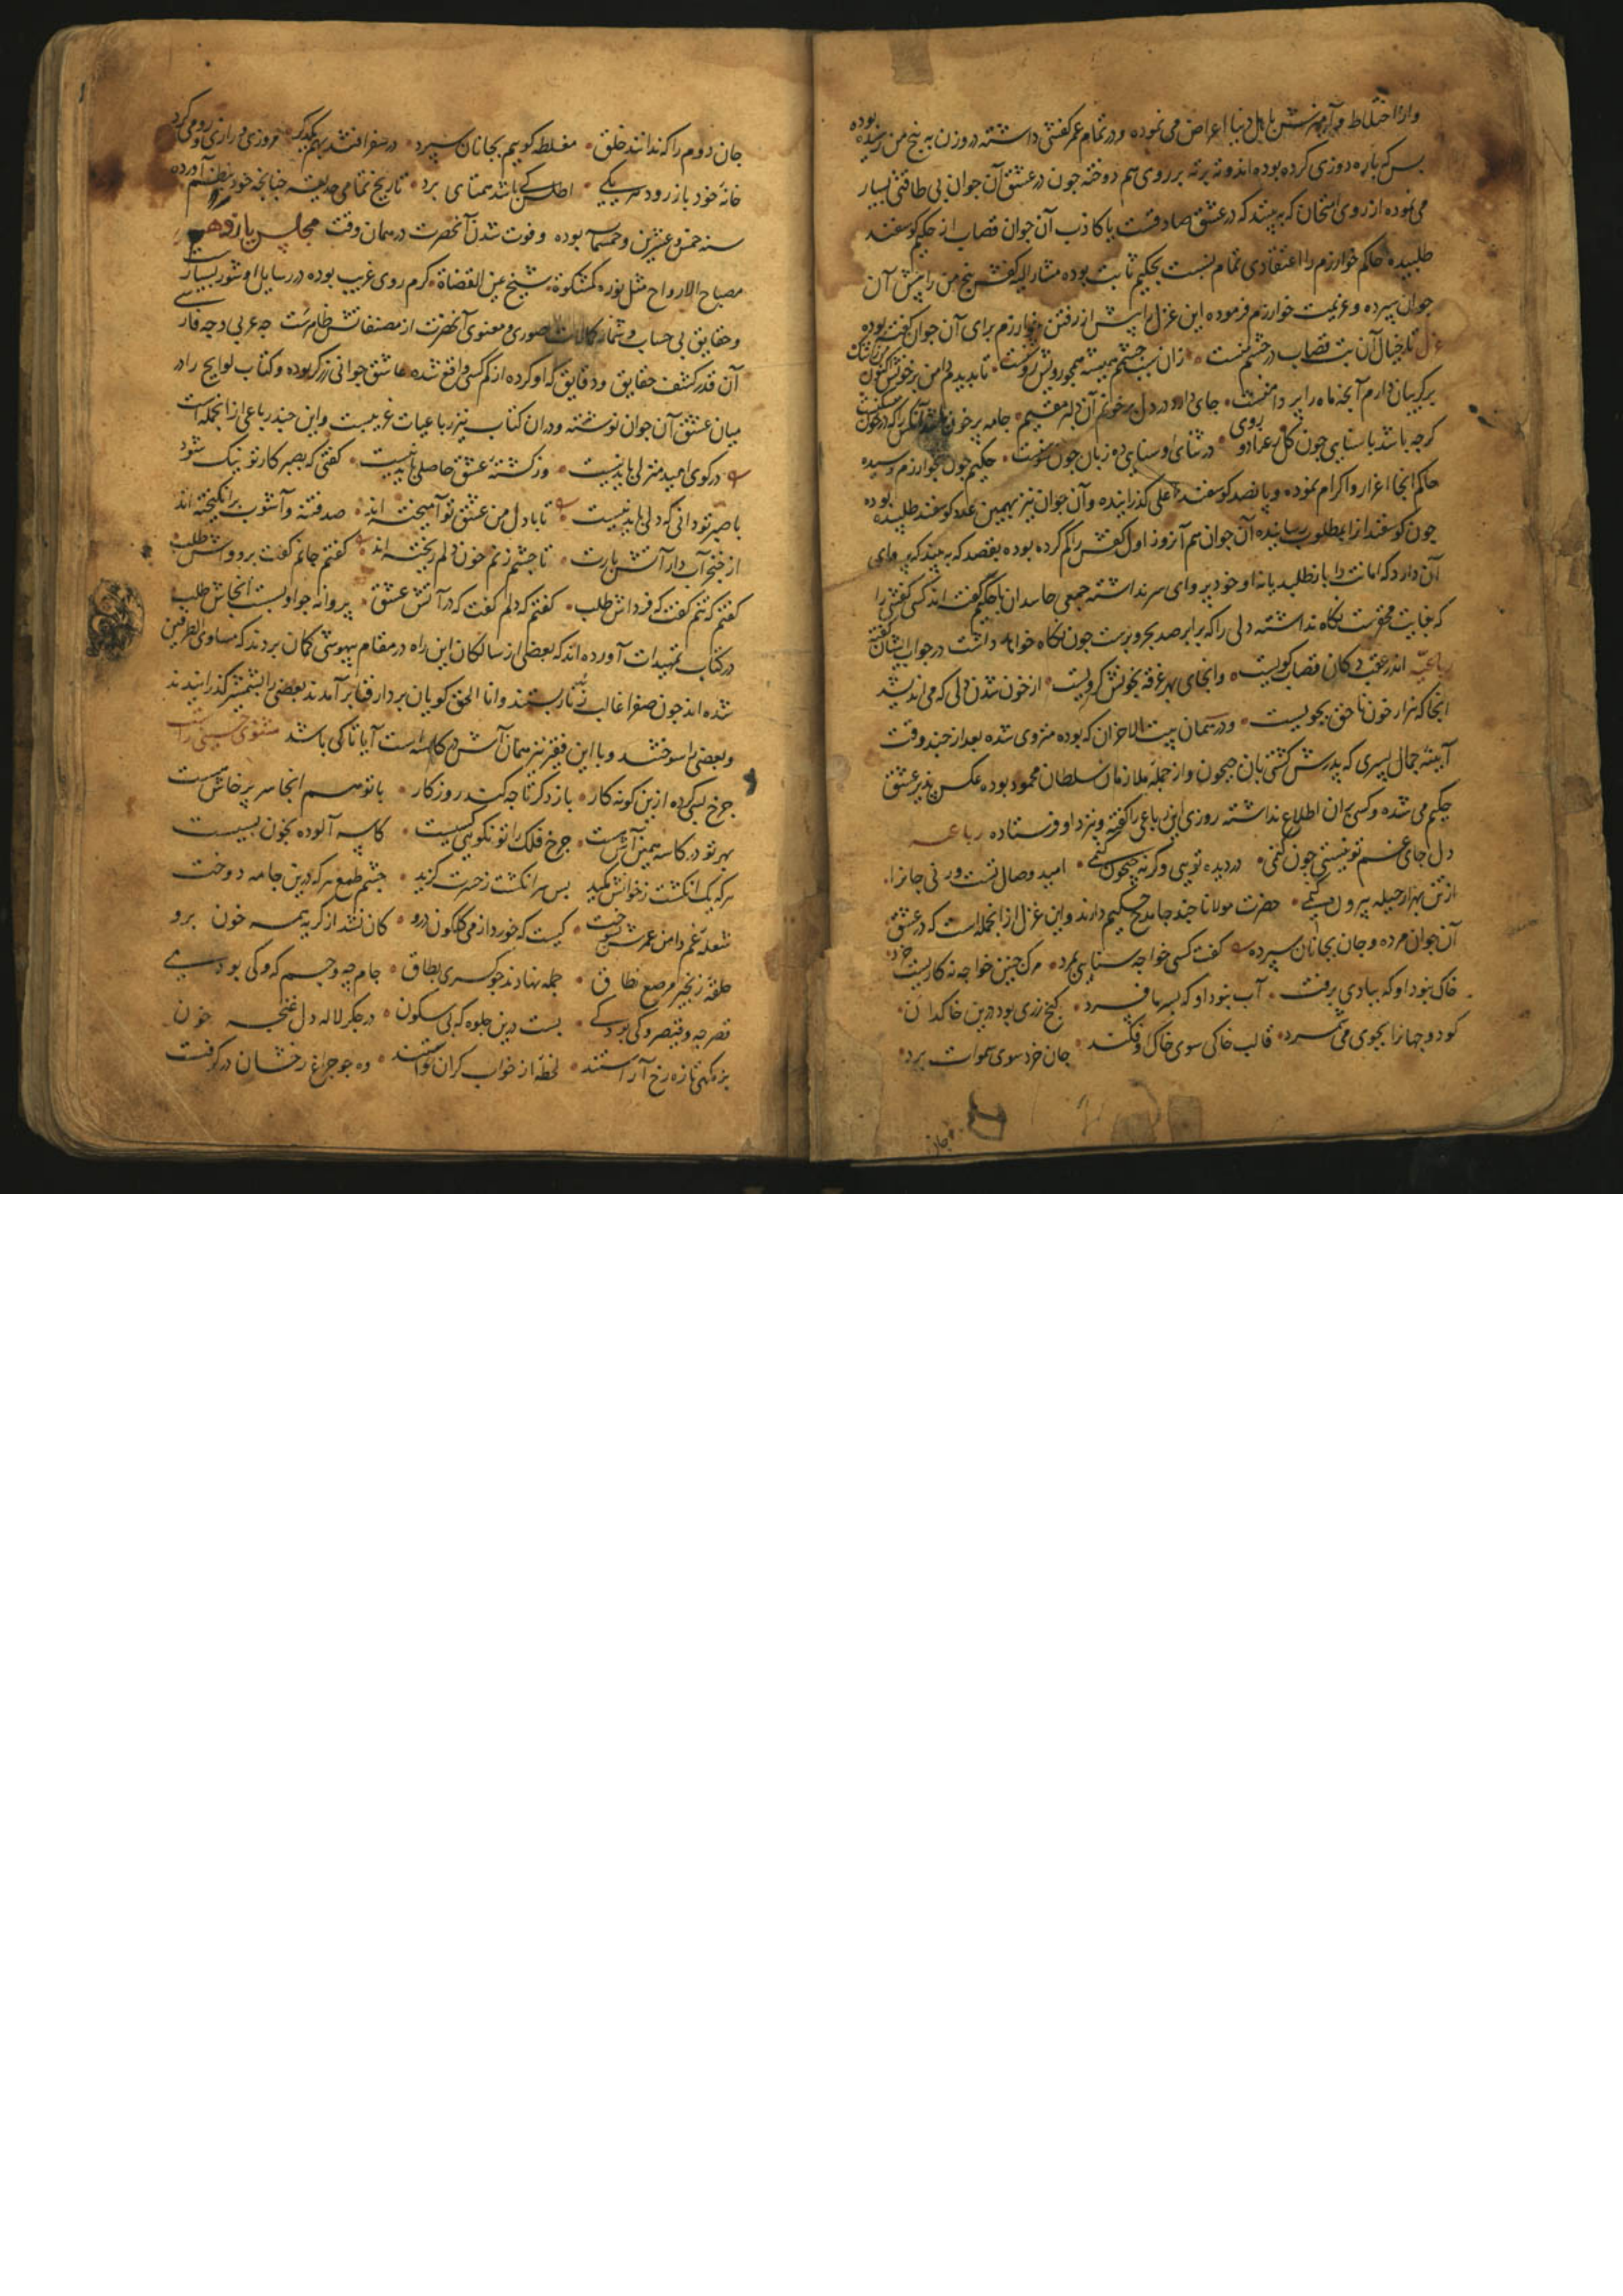 وازا اختلاط و آمیزش با اهل دنیا اعراض می نموده و در تمام عمر کفشی داشته در وزن به پنج من رسیده بوده
بس که پاره دوزی کرده بوده اند و ته بر ته بر روی هم دوخته چون در عشق آن جوان بی طاقتی بسیار
می نموده از روی امتحان که به بیند که در عشق صادقست یا کاذب آن جوان قصاب از حکیم کوسفند
طلبیده حاکم خوارزم را اعتقادی تمام نسبت بحکیم ثابت بوده مشار الیه کفش پنج من را پیش آن
جوان سپرده و عزیمت خوارزم فرموده این غزل را پیش از رفتن خوارزم برای آن جوان کفته بوده
غزل تا خیال آن بت قصاب در چشم منست زان سبب چشم همیشه همچو رویش روشنست تا بدیدم دامن پر خونش اکنون
بر کریبان دارم آنچه ماه را بر دامنست جای دارد در دل پر خونم آن دلبر مقیم جامه پر خون باشد آنکس را که در خون
کرچه باشد با سنایی چون کل رعنا دو روی در ثنای او سنایی ده زبان چون سوسنست حکیم چون بخوارزم رسیده
حاکم آنجا اعزاز و اکرام نمود و پانصد کوسفند اعلی کذرانیده و آن جوان نیز بهمین عدد کوسفند طلبیده بوده
چون کوسفند از ا بمطلوب رسانیده آن جوان هم آن روز اول کفش را کم کرده بوده بقصد که به بیند که پروای
آن دارد که امانت را باز طلبد یا نه او خود پروای سر نداشته جمعی حاسدان با حکیم کفته اند کسی کفشی را
که بغایت محقرست نکاه نداشته دلی را که برابر صد بحر و برست چون نکاه خواهد داشت در جواب ایشان کفته
رباعیه اندر عقب دکان قصاب کویست و آنجای بهر غرفه بخونش کرویست از خون شدن دل که می اندیشد
آنجا که هزار خون ناحق بجویست و در همان بیت الاحزان که بوده منزوی شده بعد از چند وقت
آیینه جمال پسری که پدرش کشتی بان جیحون و از جمله ملازمان سلطان محمود بوده عکس پذیر عشق
حکیم می شده و کسی بران اطلاع نداشته روزی این رباعی را کفته و نزد او فرستاده رباعیه
دل جای غم تو نیستی چون کنمی در دیده تویی و کرنه جیحون کنمی امید وصال تست ور نی جان را
از تن بهزار حیله بیرون کنمی حضرت مولانا چند جا مدح حکیم دارند و این غزل از انجمله است که در عشق
آن جوان مرده و جان بجانان سپرده کفت کسی خواجه سنایی بمرد مرک چنین خواجه نه کاریست خرد
خاک نبود او که ببادی برفت آب نبود او که بسرما فسرد کنج زری بود درین خاکدان
کو دو جهان را بجوی می شمرد قالب خاکی سوی خاک او فکند جان خرد سوی سموات برد
جان
جان دوم را که ندانند خلق مغلطه کویم بجانان سپرد در سفر افتند بهم یکدکر مروزی و رازی و رومی و کرد
خانه خود باز رود هر یکی اطلس کی باشد همتای برد تاریخ تمامی حدیقه چنانچه خود بنظم آورده
سنه خمس و عشرین و خمسمایه بوده و فوت شدن آنحضرت در همان وقت مجلس یازدهم
مصباح الارواح مثل نوره کمشکوة شیخ عین القضاة کرم روی غریب بوده در رسایل او شور بسیارست
و حقایق بی حساب و بیشمار کمالات صوری و معنوی آنحضرت از مصنفاتش ظاهرست چه عربی و چه فارسی
آن قدر کشف حقایق و دقایق که او کرده از کم کسی واقع شده عاشق جوانی زرکر بوده و کتاب لوایح را در
میان عشق آن جوان نوشته و در ان کتاب نیز رباعیات غریبست و این چند رباعی از انجمله است
در کوی امید منزلی باید نیست وز کشته عشق حاصلی باید نیست کفتی که بصبر کار تو نیک شود
با صبر تو دانی که دلی باید نیست تا با دل من عشق تو آمیخته اند صد فتنه و آشوب برانکیخته اند
از خنجر آب دار آتش بارت تا چشم زنم خون دلم ریخته اند کفتم جانم کفت برو واپس طلب
کفتم که تنم کفت که فرداش طلب کفتم که دلم کفت که در آتش عشق پروانه چو او بست آنجاش طلب
در کتاب تمهیدات آورده اند که بعضی از سالکان این راه در مقام بیهوشی کمان بردند که مساوی الطرفین
شده اند چون صفرا غالب زنار بستند و انا الحق کویان بر دار فنا بر آمدند بعضی را بشمشیر کذرانیدند
و بعضی را سوختند و با این فقیر نیز همان آش در کاسه است آیا تا کی باشد مثنوی حسینی راست
چرخ بسی کرده ازین کونه کار باز دکر تا چه کند روزکار با تو هم انجا سر پرخاش هست
بهر تو در کاسه همین آش هست چرخ فلک را تو نکو هی کسیست کاسه آلوده بخون بسیست
هر که یک انکشت ز خوانش مکید بس سر انکشت ز حسرت کزید چشم طمع هر که درین جامه دوخت
شعله غم دامن عمرش بسوخت کیست که خورد از می کلکون درو کان نشد از کریه همه خون برو
حلقه زنجیر مرصع نطاق جمله نهادند چو کسری بطاق جام چه و جم که و کی بود کی
قصر چه و قیصر و کی بود کی بست درین جلوه که بی سکون در جکر لاله دل غنچه خون
بزمکهی تازه رخ آراستند لحظه از خواب کران خواستند ده چو چراغ رخشان در کرفت